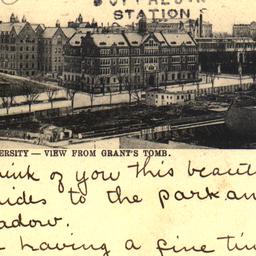 STATION
ERSITY — VIEW FROM GRANT'S TOMB.
ink of you this beaut
ides to the park an
adow.
having a fine tim